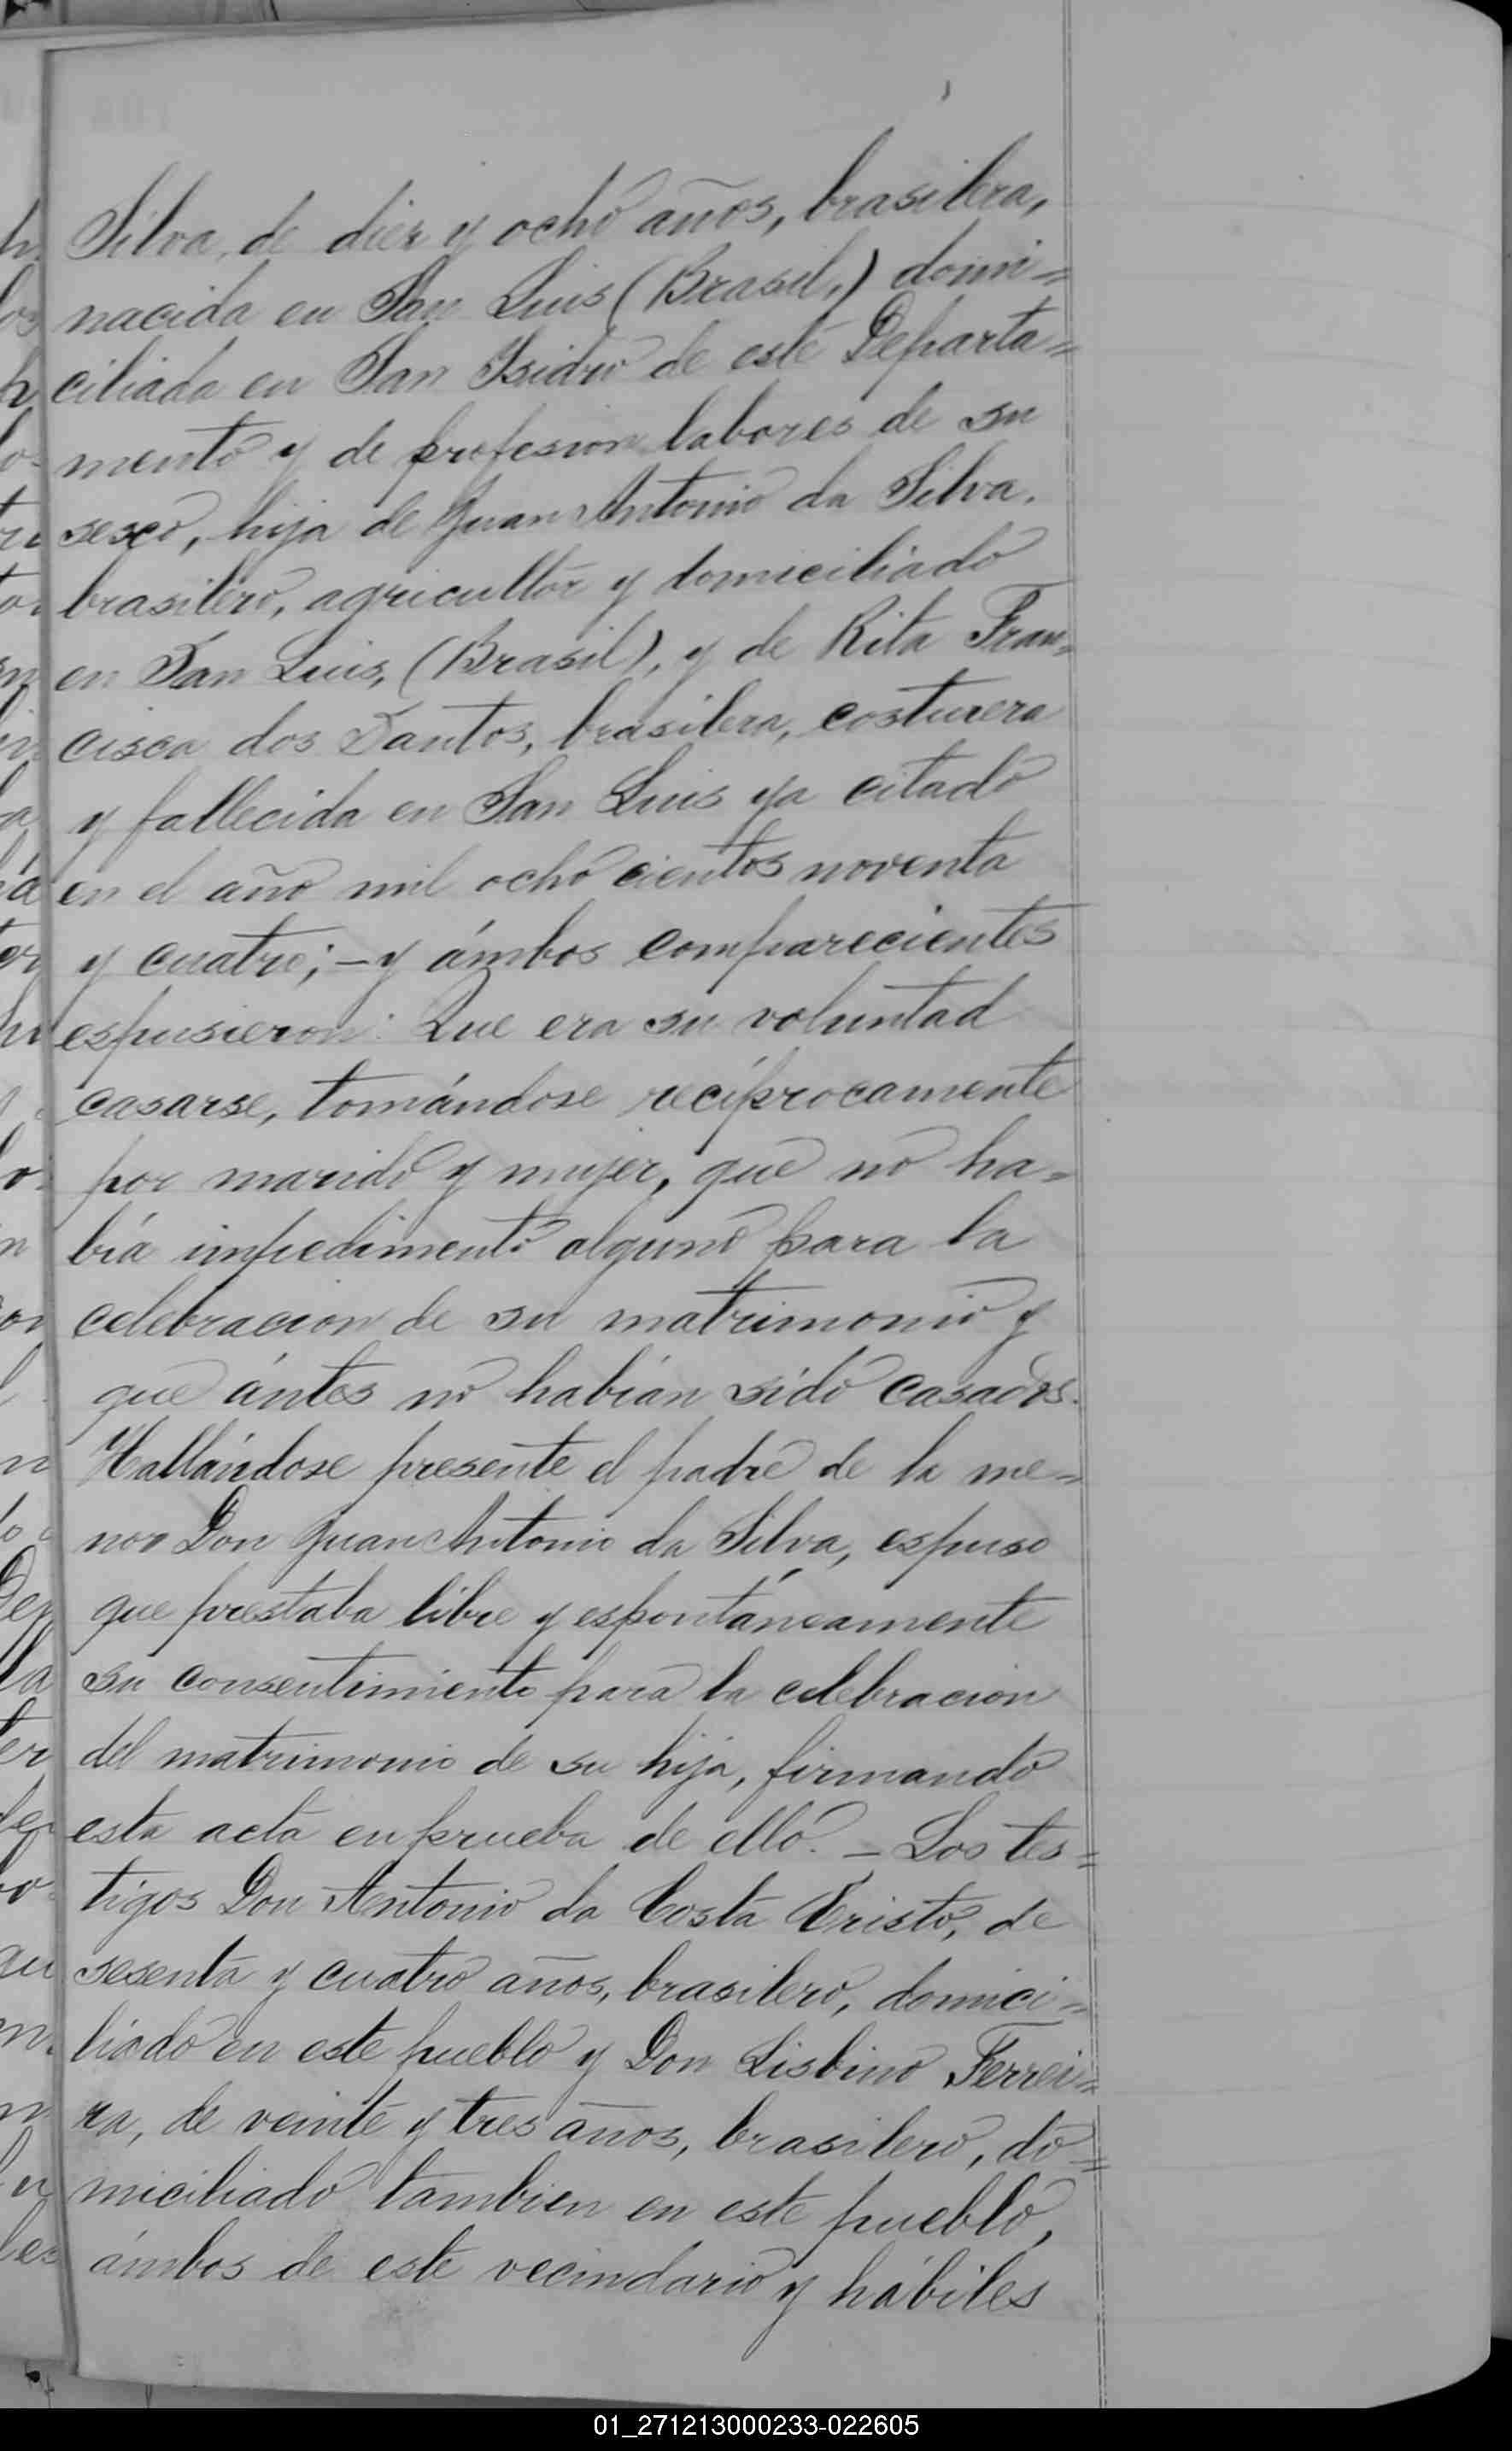 Silva, de diez y ocho años, brasilera,
nacida en San Luis (Brasil,) domi=
ciliada en San Isidro de este Departa=
mento y de profesion labores de su
sesço, hija de Juan Antonio da Silva,
brasilero, agricultor y domiciliado
en San Luis, (Brasil), y de Rita Fran=
cisca dos Santos, brasilera, costurera
y fallecida en San Luis ya citado
en el año mil ocho cientos noventa
y cuatro; – y ámbos comparecientes
espusieron: Que era su voluntad
casarse, tomándose recíprocamente
por marido y mujer, que no ha=
bía impedimento alguno para la
celebracion de su matrimonio y
que ántes no habían sido casados.
Hallándose presente el padre de la me=
nor Don Juan Antonio da Silva, espuso
que prestaba libre y espontáneamente
su consentimiento para la celebracion
del matrimonio de su hija, firmando
esta acta en prueba de ello. – Los tes=
tigos Don Antonio da Costa Cristo, de
sesenta y cuatro años, brasilero, domici=
liado en este pueblo y Don Lisbino Ferrei=
ra, de veinte y tres años, brasilero, do=
miciliado tambien en este pueblo,
ámbos de este vecindario y hábiles
01_271213000233-022605